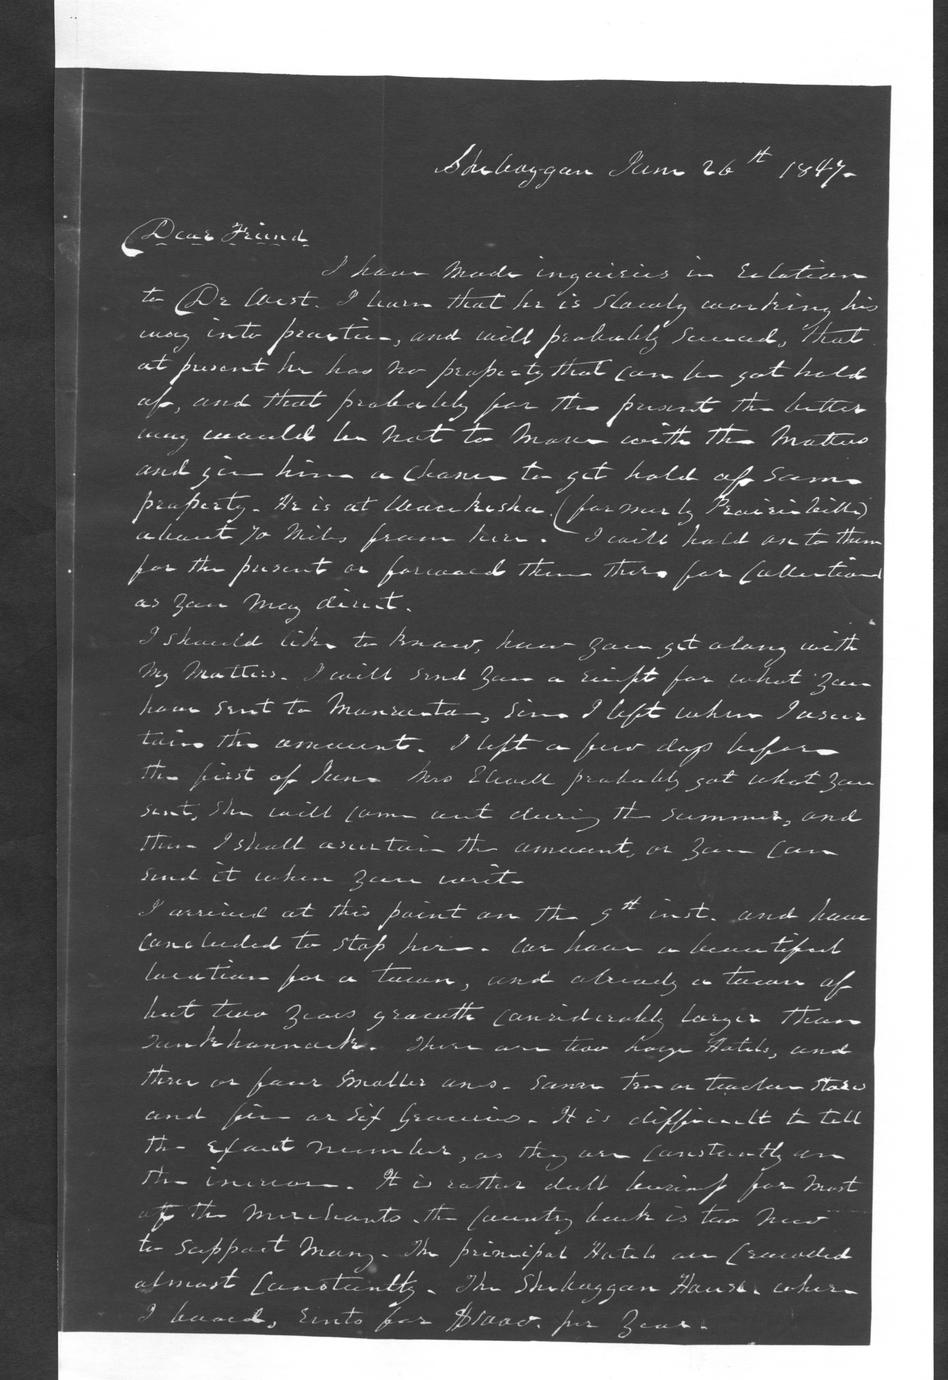 Sheboygan June 26th 1847.
Dear Friend
I have made inquiries in relation
to De West. I learn that he is slowly working his
way into practice, and will probably succeed, that
at present he has no property that can be got hold
of, and that probably for the present the better
way would be not to move with the matters
and give him a chance to get hold of some
property. He is at Waukesha (formerly Prairieville)
about 70 miles from here. I will hold on to them
for the present or forward them there for collection
as you may direct.
I should like to know, how you get along with
my matters. I will send you a receipt for what you
have sent to, since I left when I ascer
tain the amount. I left a few days before
the first of June Mrs Elwell probably got what you
sent, she will come out during the summer, and
then I shall ascertain the amount, or you can
send it when you write
I arrived at this point on the 9th inst. and have
concluded to stop here. We have a beautiful
location for a town, and already a town of
but two years growth considerably larger than
Tunkhannock. There are two large Hotels, and
three or four smaller ones. Some ten or twelve stores
and five or six Groceries. It is difficult to tell
the exact number, as they are constantly on
the increase. It is rather dull business for most
of the merchants, the country back is too new
to support many. The principal Hotels are crowded
almost constantly. The Sheboygan House where
I board, rents for $1000. per year.